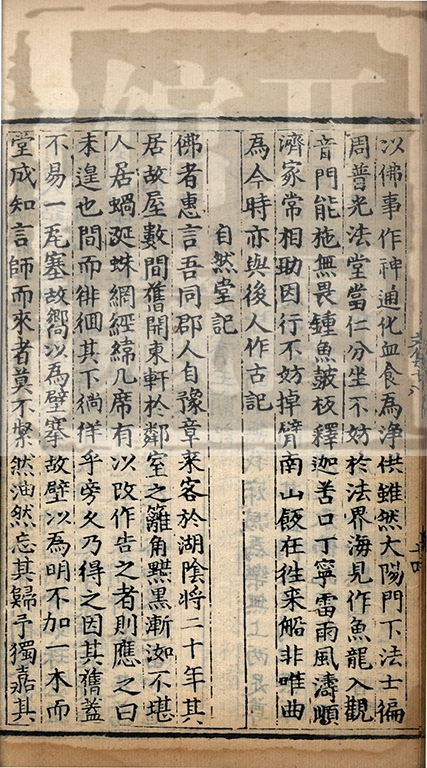 以佛事作神通化血食為淨供雖然大陽門下法士徧
周普光法堂當仁分坐不妨於法界海見作魚龍入觀
音門能施無畏鍾魚皷板釋迦苦口丁寧雷雨風濤順
濟家常相助因行不妨掉臂南山飯在往来船非唯曲
為今時亦與後人作古記
自然堂記
佛者惠言吾同郡人自豫章来客於湖陰將二十年其
居故屋數間舊開東軒於鄰室之籬角黮黑漸洳不堪
人居蝸涎蛛網經緯几席有以改作告之者則應之曰
未遑也間而徘徊其下徜徉乎旁乆乃得之因其舊蓋
不易一瓦塞故嚮以為壁塞故壁以為明不加一木而
堂成知言師而來者莫不粲然油然忘其歸予獨嘉其